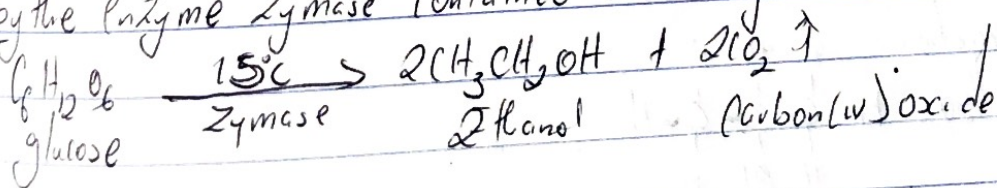 by the Enzyme Zymase
C6H12O6 15°C → 2CH3CH2OH + 2CO2 ↑
glucose Zymase Ethanol Carbon(iv)oxide